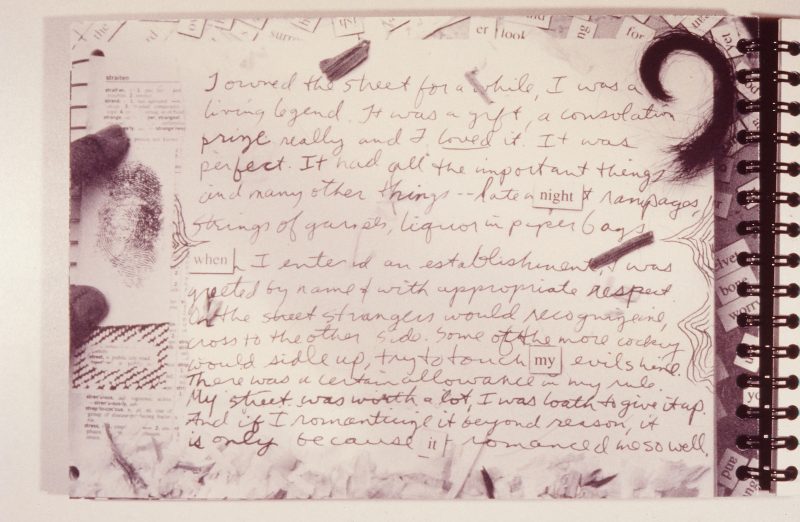 the
er
look
for
straiten
strange
I owned the street for a while, I was a
living legend. It was a gift, a consolation
prize really and I loved it. It was
perfect. It had all the important things
and many other things -- late night rampages,
strings of guises, liquor in paper bags
when I entered an establishment, I was
greeted by name & with appropriate respect
On the street strangers would recognize me,
cross to the other side. Some of the more cocky
would sidle up, try to touch my evil shine.
There was a certain allowance in my rule.
My street was worth a lot, I was loath to give it up.
And if I romanticize it beyond reason, it
is only because it romanced me so well.
velvet
bone
worry
and